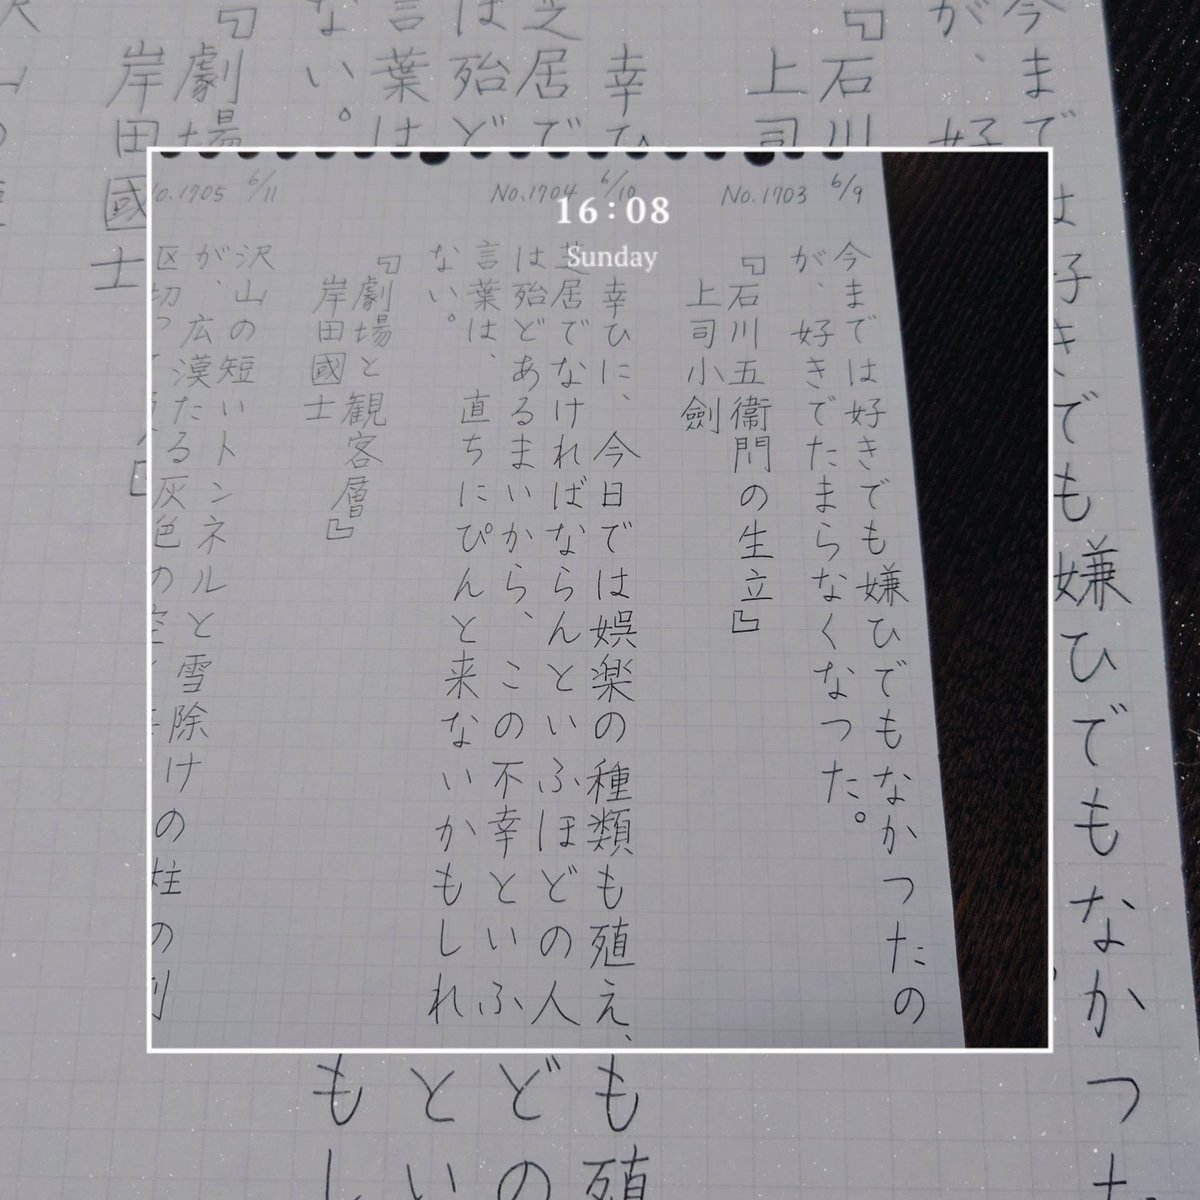 16:08
Sunday
No.1703 6/9
今までは好きでも嫌ひでもなかつたの
が、好きでたまらなくなつた。
『石川五衞門の生立』
上司小劍
No.1704 6/10
幸ひに、今日では娯楽の種類も殖え、
芝居でなければならんといふほどの人
は殆どあるまいから、この不幸といふ
言葉は、直ちにぴんと来ないかもしれ
ない。
『劇場と観客層』
岸田國士
o.1705 6/11
沢山の短いトンネルと雪除けの柱の列
が、広漠たる灰色の空
区切つ